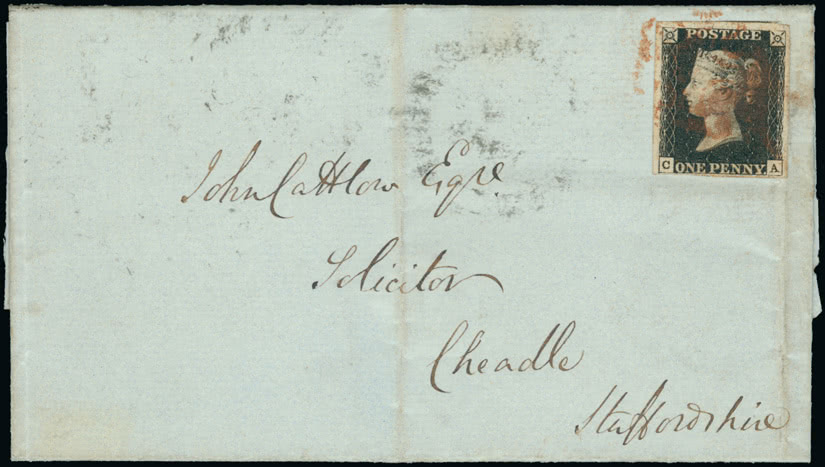 POSTAGE
C A
ONE PENNY
John Cattlow Esqre.
Solicitor
Cheadle
Staffordshire